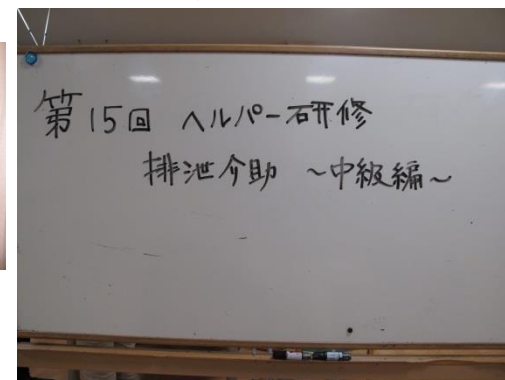 第15回 ヘルパー研修
排泄介助 ～中級編～